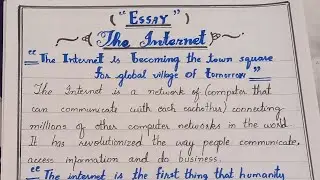 ("ESSAY")
The Internet
"The Internet is becoming the town square
for global village of tomorrow"
The Internet is a network of (computer that
can communicate with each eachother) connecting
millions of other computer networks in the world
It has revolutionized the way people communicate,
access information and do business.
"The internet is the first thing that humanity